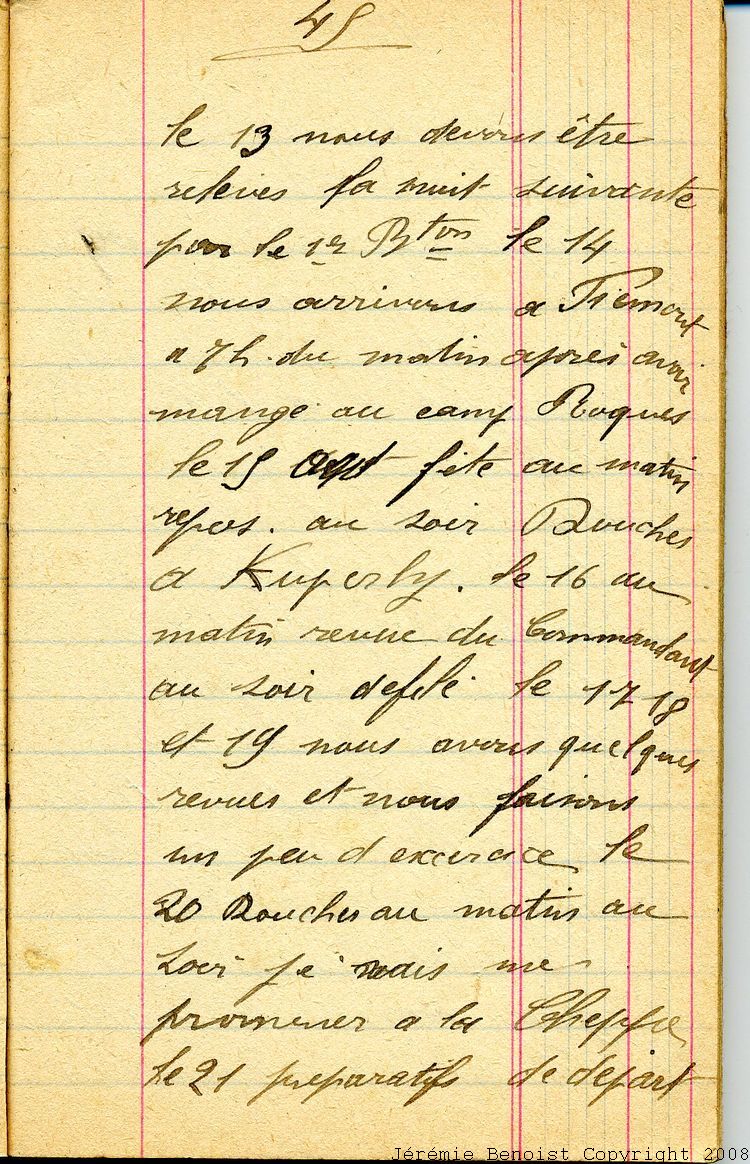 45
le 13 nous devons être
releves la nuit suivante
par le 1er Bton le 14
nous arrivons a Piémont
a 7h. du matin après avoir
mangé au camp Roques
le 15 aout fête au matin
repos. au soir Douches
a Kuperly. le 16 au
matin revue du Commandant
au soir defilé le 17 18
et 19 nous avons quelques
revues et nous faisons
un peu d exercice le
20 Douches au matin au
soir je vais me
promener a la Cheppe
le 21 preparatifs de départ
Jérémie Benoist Copyright 2008